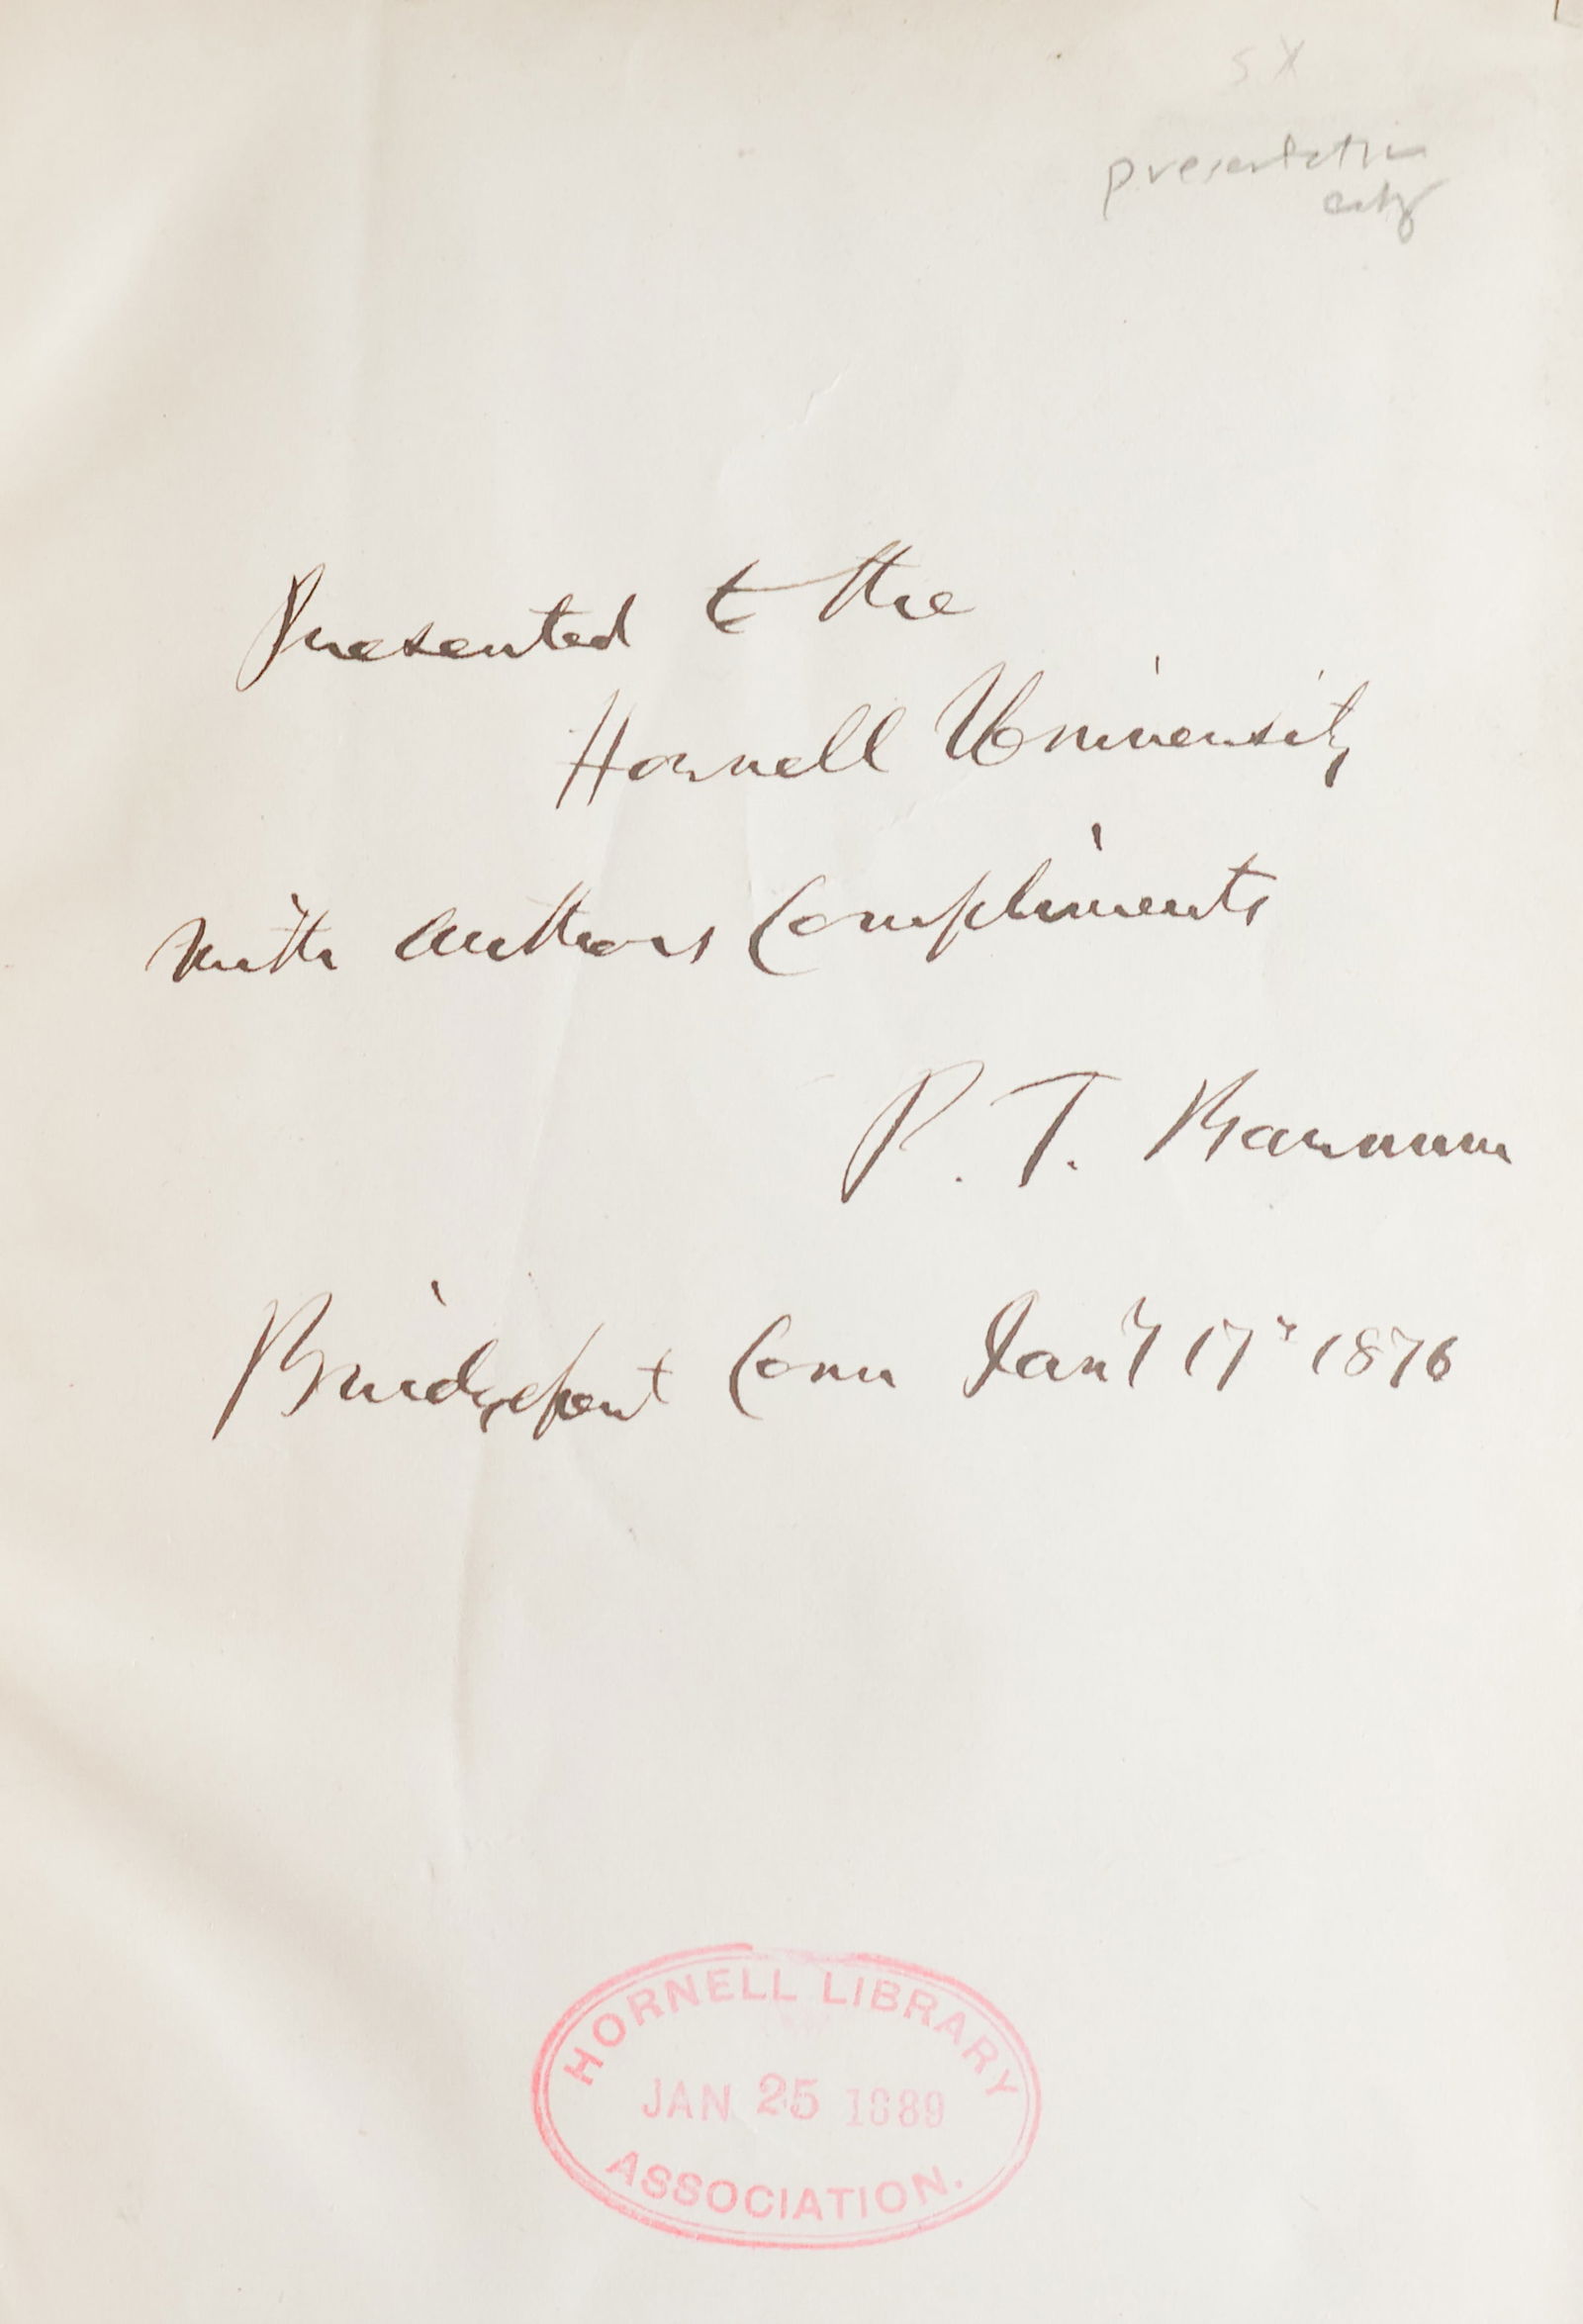 SX
presentation
copy
Presented to the
Hornell University
with authors Compliments
P. T. Barnum
Bridgeport Conn Jany 17th 1876
HORNELL LIBRARY
JAN 25 1889
ASSOCIATION.